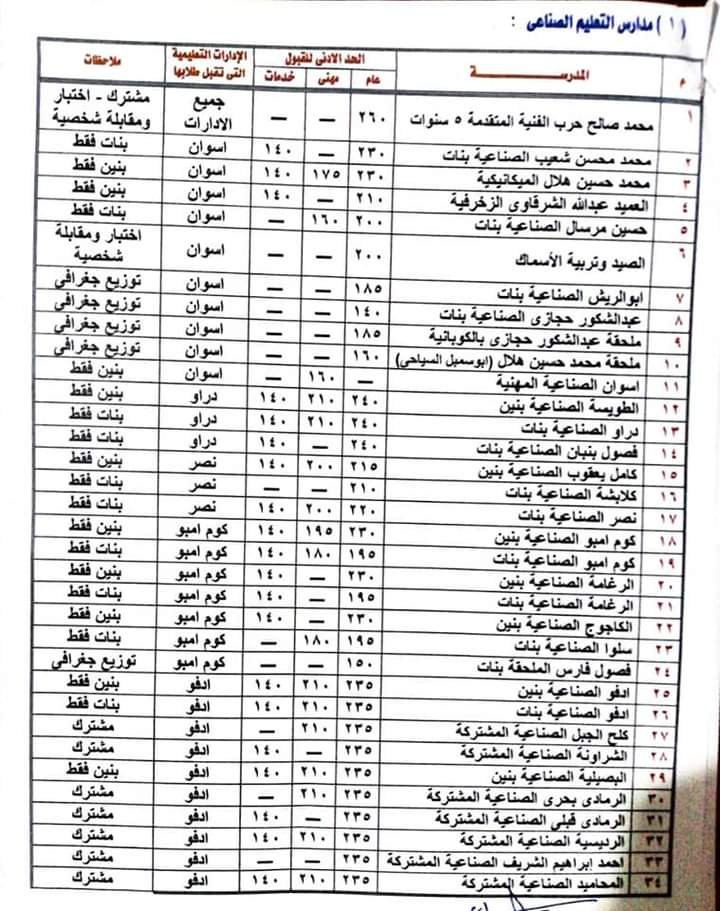 (١) مدارس التعليم الصناعى :
م المدرسة الحد الادنى للقبول الإدارات التعليمية التى تقبل طلابها ملاحظات
عام مهنى خدمات
١ محمد صالح حرب الفنية المتقدمة ٥ سنوات ٢٦٠ — — جميع الادارات مشترك - اختبار ومقابلة شخصية
٢ محمد محسن شعيب الصناعية بنات ٢٣٠ — ١٤٠ اسوان بنات فقط
٣ محمد حسين هلال الميكانيكية ٢٣٠ ١٧٥ ١٤٠ اسوان بنين فقط
٤ العميد عبدالله الشرقاوى الزخرفية ٢١٠ — ١٤٠ اسوان بنين فقط
٥ حسين مرسال الصناعية بنات ٢٠٠ ١٦٠ — اسوان بنات فقط
٦ الصيد وتربية الأسماك ٢٠٠ — — اسوان اختبار ومقابلة شخصية
٧ ابوالريش الصناعية بنات ١٨٥ — — اسوان توزيع جغرافى
٨ عبدالشكور حجازى الصناعية بنات ١٤٠ — — اسوان توزيع جغرافى
٩ ملحقة عبدالشكور حجازى بالكوبانية ١٨٥ — — اسوان توزيع جغرافى
١٠ ملحقة محمد حسين هلال (ابوسمبل السياحى) ١٦٠ — — اسوان توزيع جغرافى
١١ اسوان الصناعية المهنية — ١٦٠ — اسوان بنين فقط
١٢ الطويسة الصناعية بنين ٢٤٠ ٢١٠ ١٤٠ دراو بنين فقط
١٣ دراو الصناعية بنات ٢٤٠ ٢١٠ ١٤٠ دراو بنات فقط
١٤ فصول بنبان الصناعية بنات ٢٤٠ — ١٤٠ دراو بنات فقط
١٥ كامل يعقوب الصناعية بنين ٢١٥ ٢٠٠ ١٤٠ نصر بنين فقط
١٦ كلابشة الصناعية بنات ٢١٠ — — نصر بنات فقط
١٧ نصر الصناعية بنات ٢٢٠ ٢٠٠ ١٤٠ نصر بنات فقط
١٨ كوم امبو الصناعية بنين ٢٣٠ ١٩٥ ١٤٠ كوم امبو بنين فقط
١٩ كوم امبو الصناعية بنات ١٩٥ ١٨٠ ١٤٠ كوم امبو بنات فقط
٢٠ الرغامة الصناعية بنين ٢٣٠ — ١٤٠ كوم امبو بنين فقط
٢١ الرغامة الصناعية بنات ١٩٥ — ١٤٠ كوم امبو بنات فقط
٢٢ الكاجوج الصناعية بنين ٢٣٠ — ١٤٠ كوم امبو بنين فقط
٢٣ سلوا الصناعية بنات ١٩٥ ١٨٠ — كوم امبو بنات فقط
٢٤ فصول فارس الملحقة بنات ١٥٠ — — كوم امبو توزيع جغرافى
٢٥ ادفو الصناعية بنين ٢٣٥ ٢١٠ ١٤٠ ادفو بنين فقط
٢٦ ادفو الصناعية بنات ٢٣٥ ٢١٠ ١٤٠ ادفو بنات فقط
٢٧ كلح الجبل الصناعية المشتركة ٢٣٥ ٢١٠ — ادفو مشترك
٢٨ الشراونة الصناعية المشتركة ٢٣٥ — ١٤٠ ادفو مشترك
٢٩ البصيلية الصناعية بنين ٢٣٥ ٢١٠ ١٤٠ ادفو بنين فقط
٣٠ الرمادى بحرى الصناعية المشتركة ٢٣٥ ٢١٠ — ادفو مشترك
٣١ الرمادى قبلى الصناعية المشتركة ٢٣٥ — ١٤٠ ادفو مشترك
٣٢ الرديسية الصناعية المشتركة ٢٣٥ ٢١٠ ١٤٠ ادفو مشترك
٣٣ احمد ابراهيم الشريف الصناعية المشتركة ٢٣٥ — — ادفو مشترك
٣٤ المحاميد الصناعية المشتركة ٢٣٥ ٢١٠ ١٤٠ ادفو مشترك